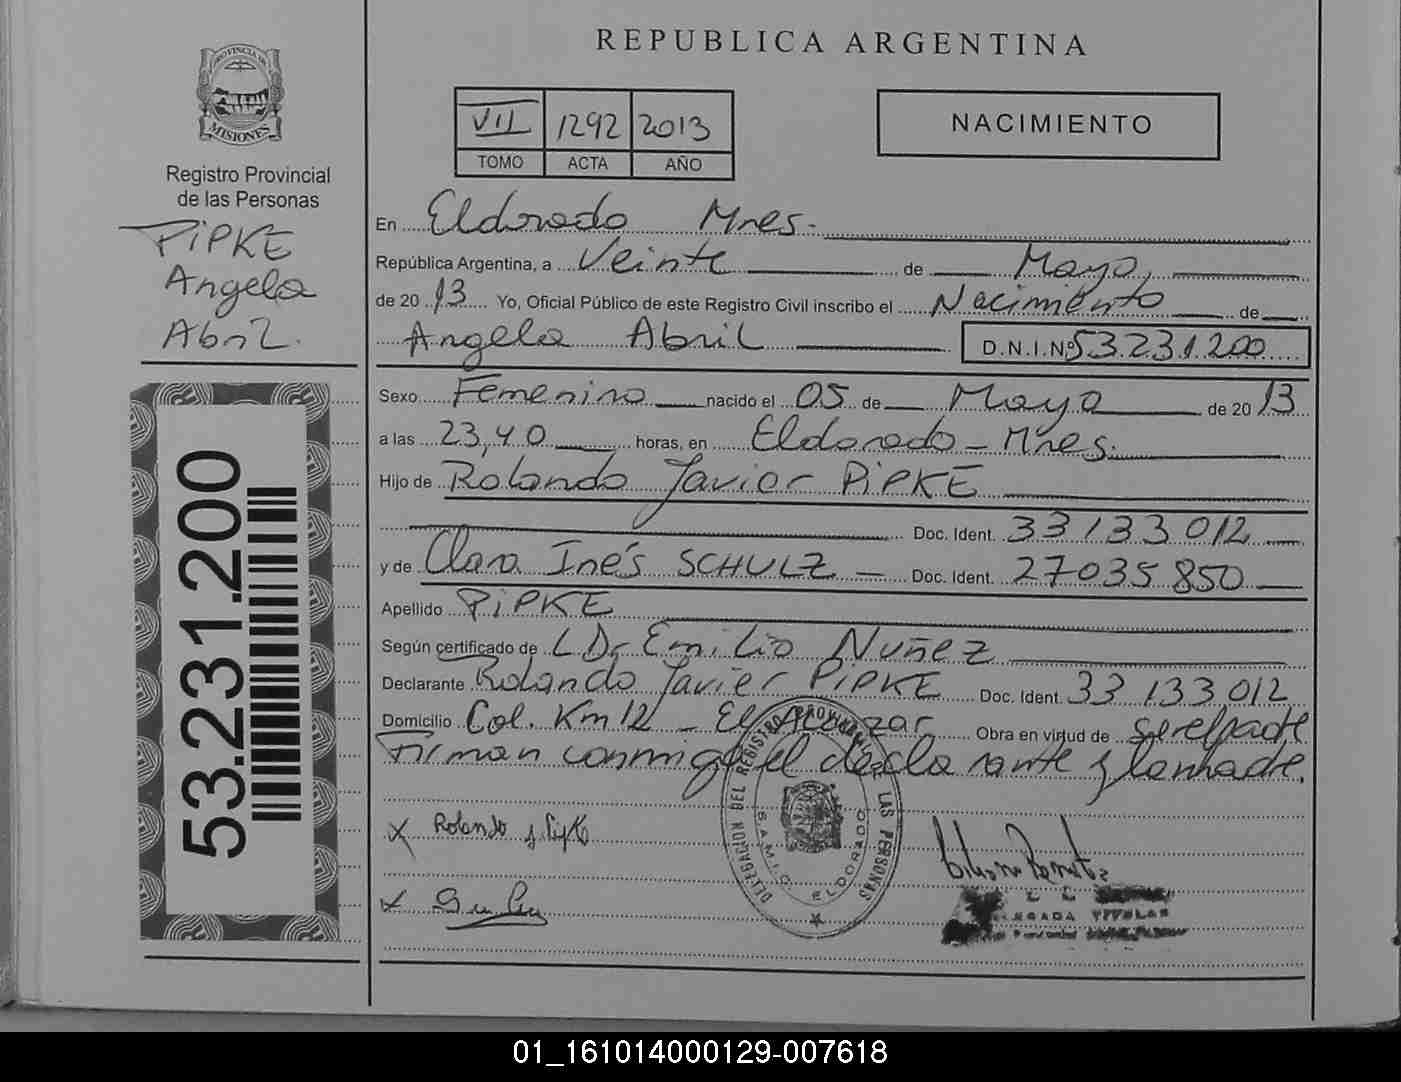 REPUBLICA ARGENTINA
PROVINCIA DE
MISIONES
Registro Provincial
de las Personas
PiPKE
Angela
Abril.
VII 1292 2013
TOMO ACTA AÑO
NACIMIENTO
En Eldorado Mnes.
República Argentina, a Veinte de Mayo,
de 20 13 Yo, Oficial Público de este Registro Civil inscribo el Nacimiento de
Angela Abril D.N.I.Nº 53.231.200
Sexo Femenino nacido el 05 de Mayo de 20 13
a las 23,40 horas, en Eldorado - Mnes.
Hijo de Rolando Javier PiPKE
Doc. Ident. 33 133 012
y de Clara Inés SCHULZ Doc. Ident. 27035 850
Apellido PiPKE
Según certificado de Dr Emilio Nuñez
Declarante Rolando Javier PiPKE Doc. Ident. 33 133 012
Domicilio Col. Km 12 - El Alcazar Obra en virtud de ser el padre
Firman conmigo el declarante y la madre.
53.231.200
X Rolando J. Pipke
X
DELEGACION DEL REGISTRO PROVINCIAL DE LAS PERSONAS
S.A.M.I.C. ELDORADO
TITULAR
01_161014000129-007618